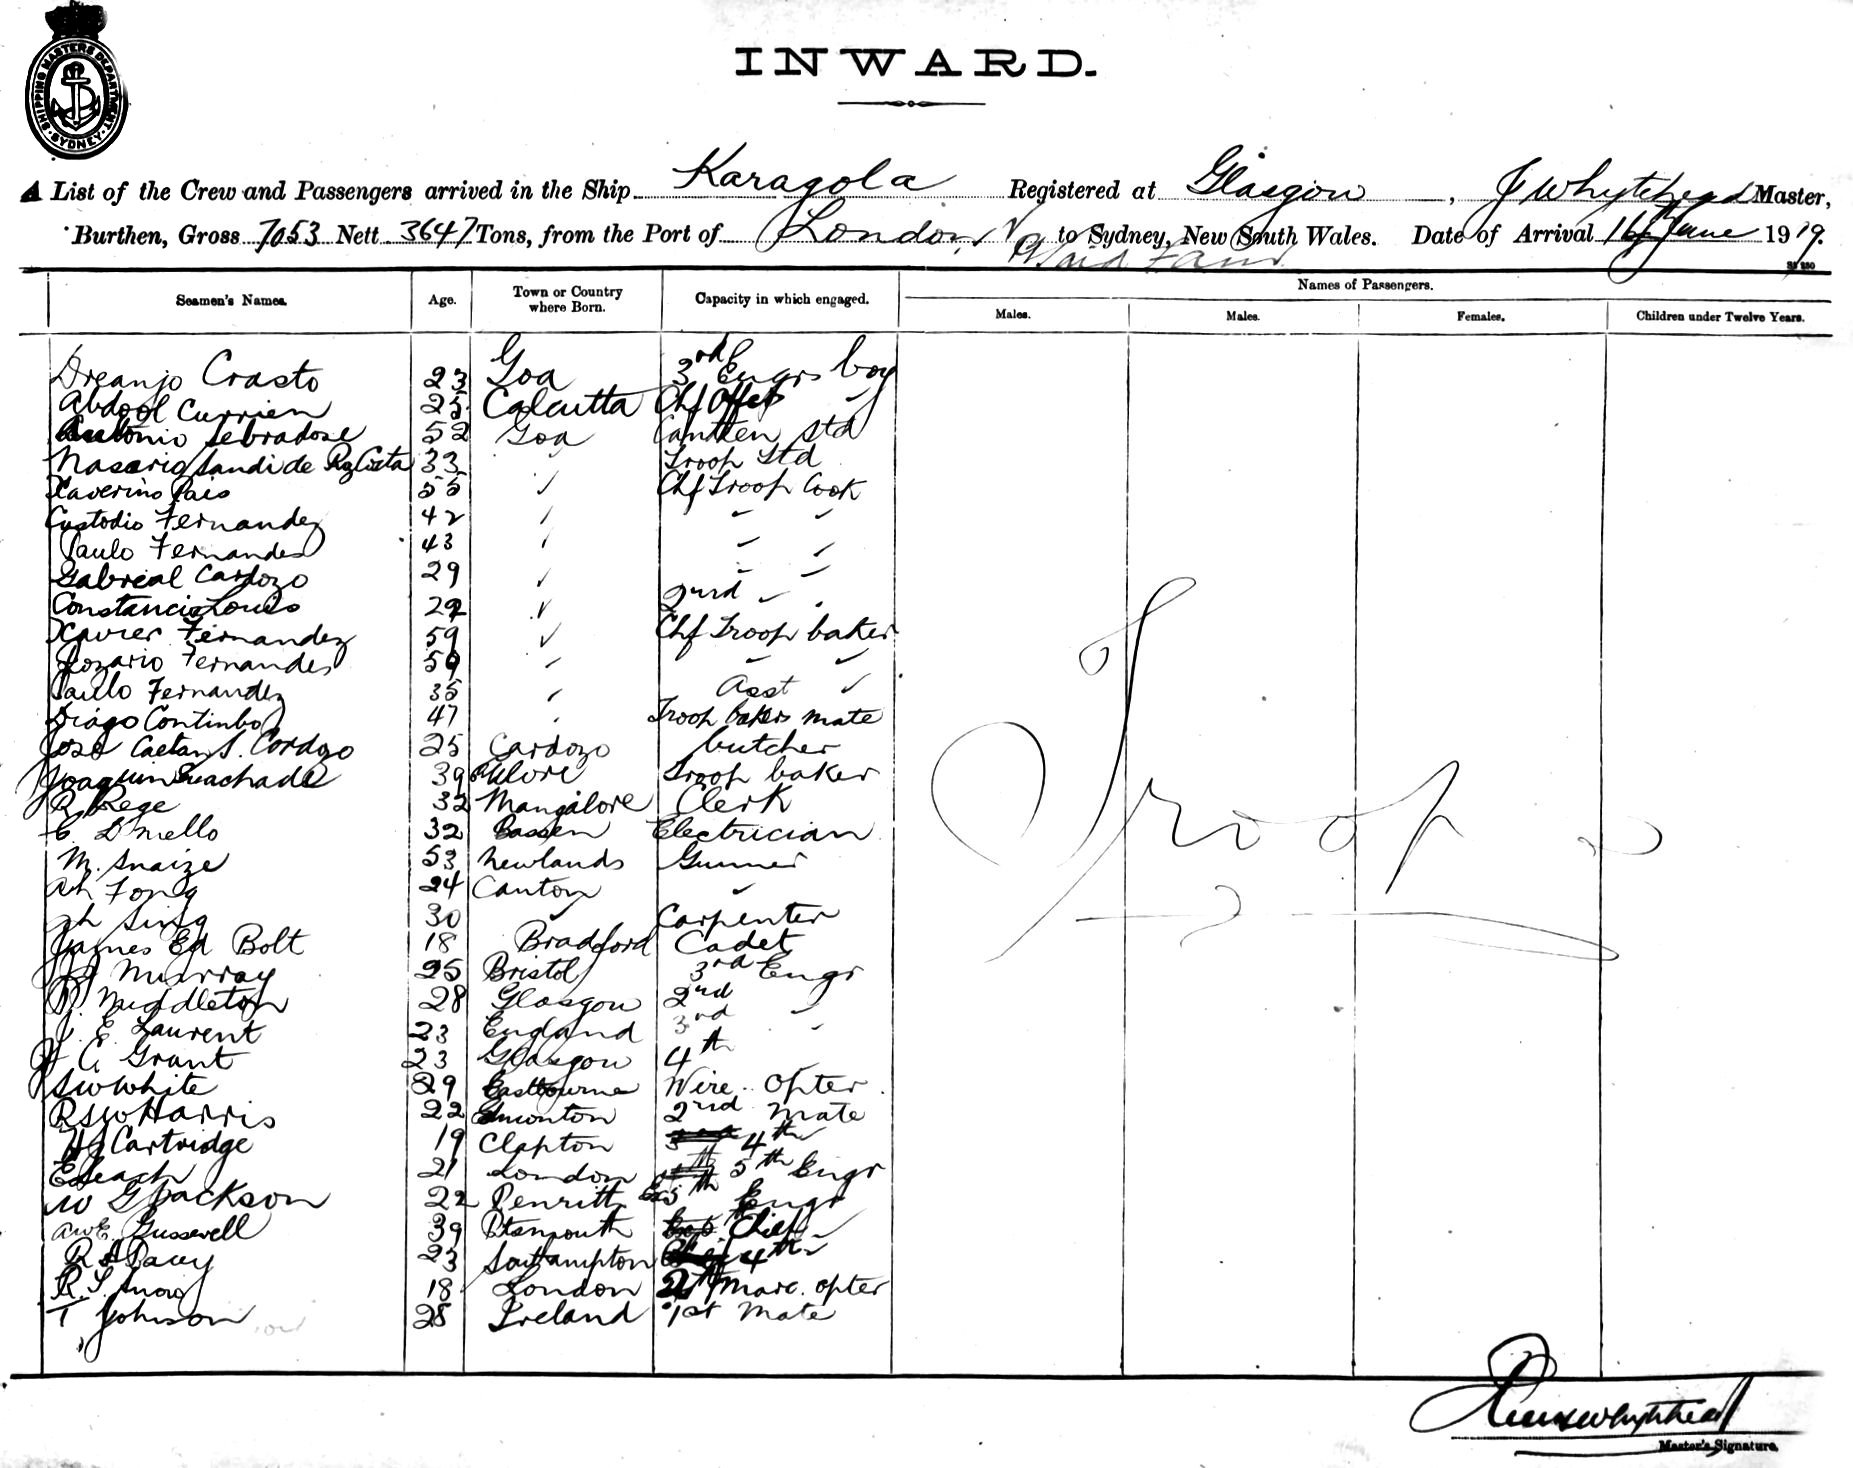 SHIPPING MASTERS DEPARTMENT
SYDNEY
INWARD.
A List of the Crew and Passengers arrived in the Ship Karagola Registered at Glasgow, J Whytehead Master,
Burthen, Gross 7053 Nett 3647 Tons, from the Port of London to Sydney, New South Wales. Date of Arrival 16th June 1919.
Seamen's Names. Age. Town or Country where Born. Capacity in which engaged. Names of Passengers.
Males. Males. Females. Children under Twelve Years.
Crasto 23 Goa 3rd Engrs boy
Abdool Currien 25 Calcutta Chf Offrs ✓
Antonio 52 Goa Canteen Std
33 Troop Std
Xaverino Pais 55 ✓ Chf Troop Cook
Custodio Fernandez 42 ✓ ✓ ✓
Paulo Fernandes 43 ✓ ✓ ✓
Gabreal Cardozo 29 ✓ ✓ ✓
Constancio Louis 29 ✓ 2nd ✓
Xavier Fernandez 59 ✓ Chf Troop baker
Rozario Fernandes 50 ✓ ✓ ✓
Paulo Fernandez 35 ✓ Asst ✓
Diago Continho 47 Troop bakers mate
Jose Caetan S. Cordozo 25 Cardozo butcher
Joaquim 39 Troop baker
R Rege 32 Mangalore Clerk
C. D'mello 32 Bassen Electrician
M. Snaize 53 Newlands Gunner
Ah Fong 24 Canton ✓
Ah Sing 30 ✓ Carpenter
James Ed Bolt 18 Bradford Cadet
Murray 25 Bristol 3rd Engr
Middleton 28 Glasgow 2nd ✓
J. E. Laurent 23 England 3rd ✓
J C Grant 23 Glasgow 4th
S W White 29 Eastbourne Wire. Opter
R S W Harris 22 Edmonton 2nd Mate
H J Cartridge 19 Clapton 4th ✓
E Leach 21 London 5th Engr
W G Jackson 22 Penrith 5th Engr
A W E. Gussewell 39 Ptsmouth Chief ✓
R A Pacey 23 Southampton 4th ✓
R. S. Snow 18 London Marc. opter
T Johnson 28 Ireland 1st Mate
Troop
Master's Signature.